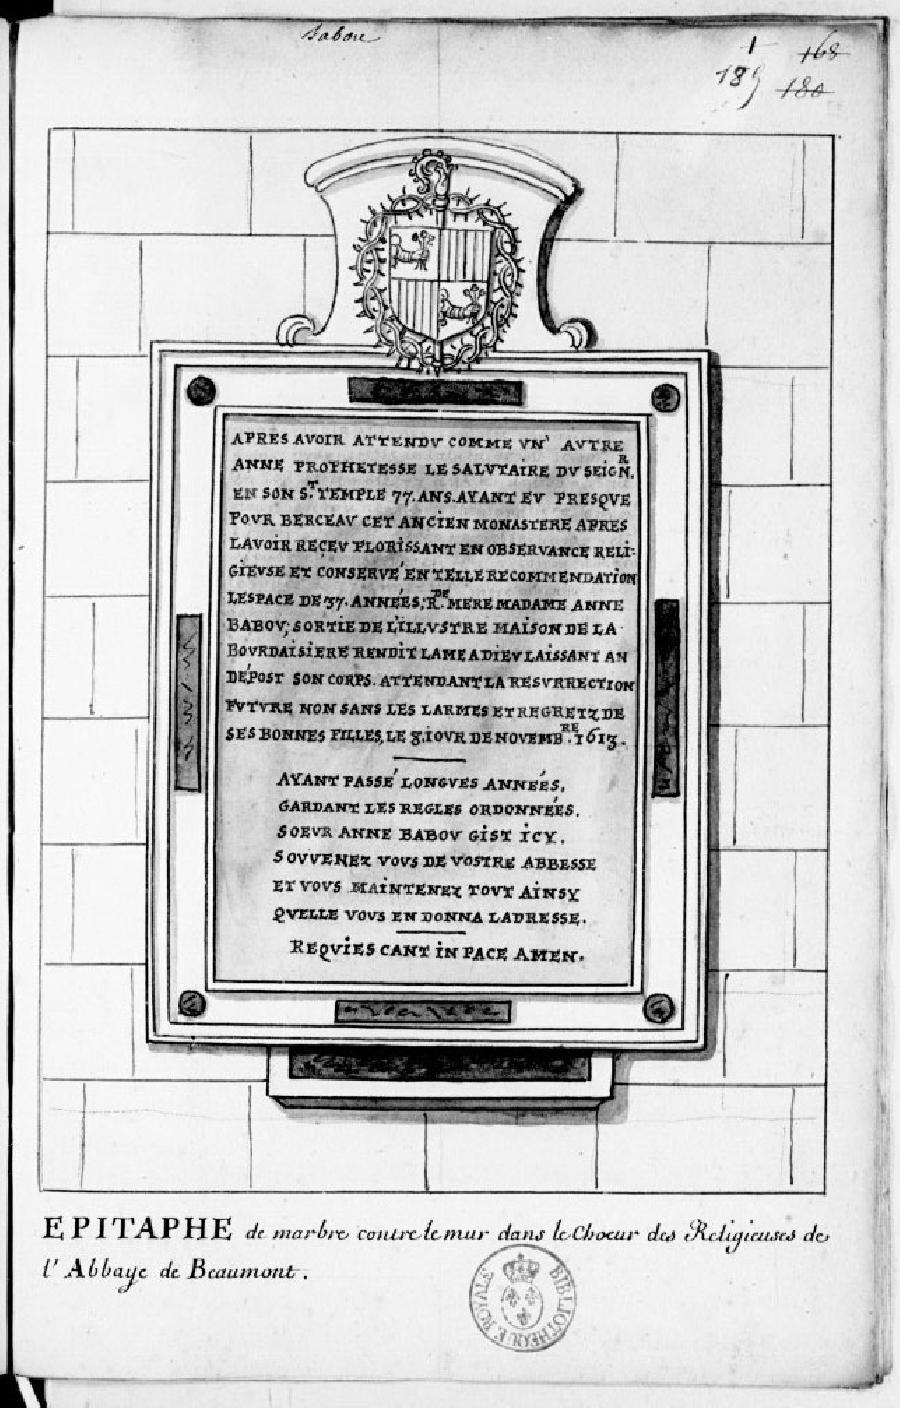 Babou
1
168
189
180
APRES AVOIR ATTENDV COMME VN' AVTRE
ANNE PROPHETESSE LE SALVTAIRE DV SEIGN.R
EN SON S.T TEMPLE 77. ANS. AYANT EV PRESQVE
POVR BERCEAV CET ANCIEN MONASTERE APRES
LAVOIR REÇEV FLORISSANT EN OBSERVANCE RELI-
GIEVSE ET CONSERVÉ EN TELLE RECOMMENDATION
LESPACE DE 37. ANNÉES, R.DE MERE MADAME ANNE
BABOV; SORTIE DE L'ILLVSTRE MAISON DE LA
BOVRDAISIERE RENDIT LAME A DIEV LAISSANT AN
DÉPOST SON CORPS. ATTENDANT LA RESVRRECTION
FVTVRE NON SANS LES LARMES ET REGRETZ DE
SES BONNES FILLES, LE 8. IOVR DE NOVEMB.RE 1613.
AYANT PASSÉ LONGVES ANNÉES,
GARDANT LES REGLES ORDONNÉES.
SOEVR ANNE BABOV GIST ICY.
SOVVENEZ VOVS DE VOSTRE ABBESSE
ET VOVS MAINTENEZ TOVT AINSY
QVELLE VOVS EN DONNA LADRESSE.
REQVIES CANT IN PACE AMEN.
EPITAPHE de marbre contre le mur dans le Choeur des Religieuses de
l'Abbaye de Beaumont.
BIBLIOTHEQUE ROYALE